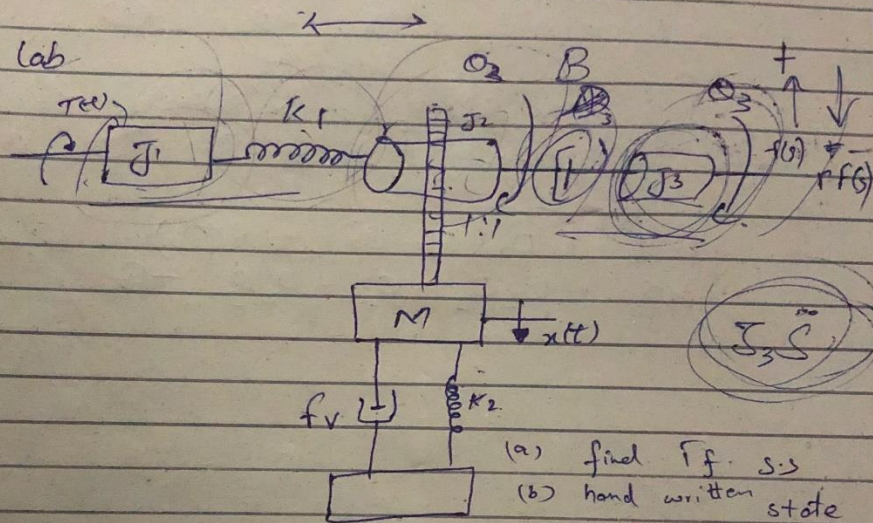 Lab
T(t)
J1
K1
θ2
J2
B
θ3
J3
+
f(s)
-
r f(s)
1:1
M
x(t)
J3 S
fv
K2
(a) find Tf. s.s
(b) hand written state